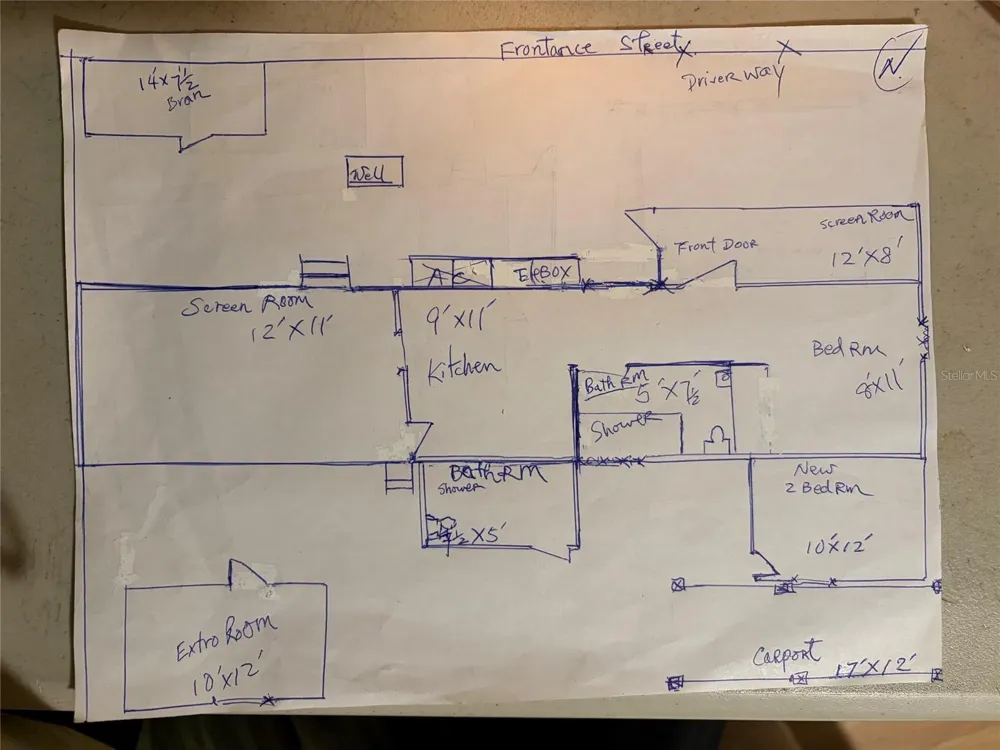 Frontance Street
Driver way
N.
14'x7½
Bran
Well
Screen Room
12'X8'
Front Door
AC
EleBOX
Screen Room
12'X11'
9'X11'
Kitchen
Bed Rm
8'X11'
Bath RM
5'X7½'
Shower
Stellar MLS
BathRM
Shower
½X5'
New
2 Bed Rm
10'X12'
Extro Room
10'X12'
Carport
17'X12'